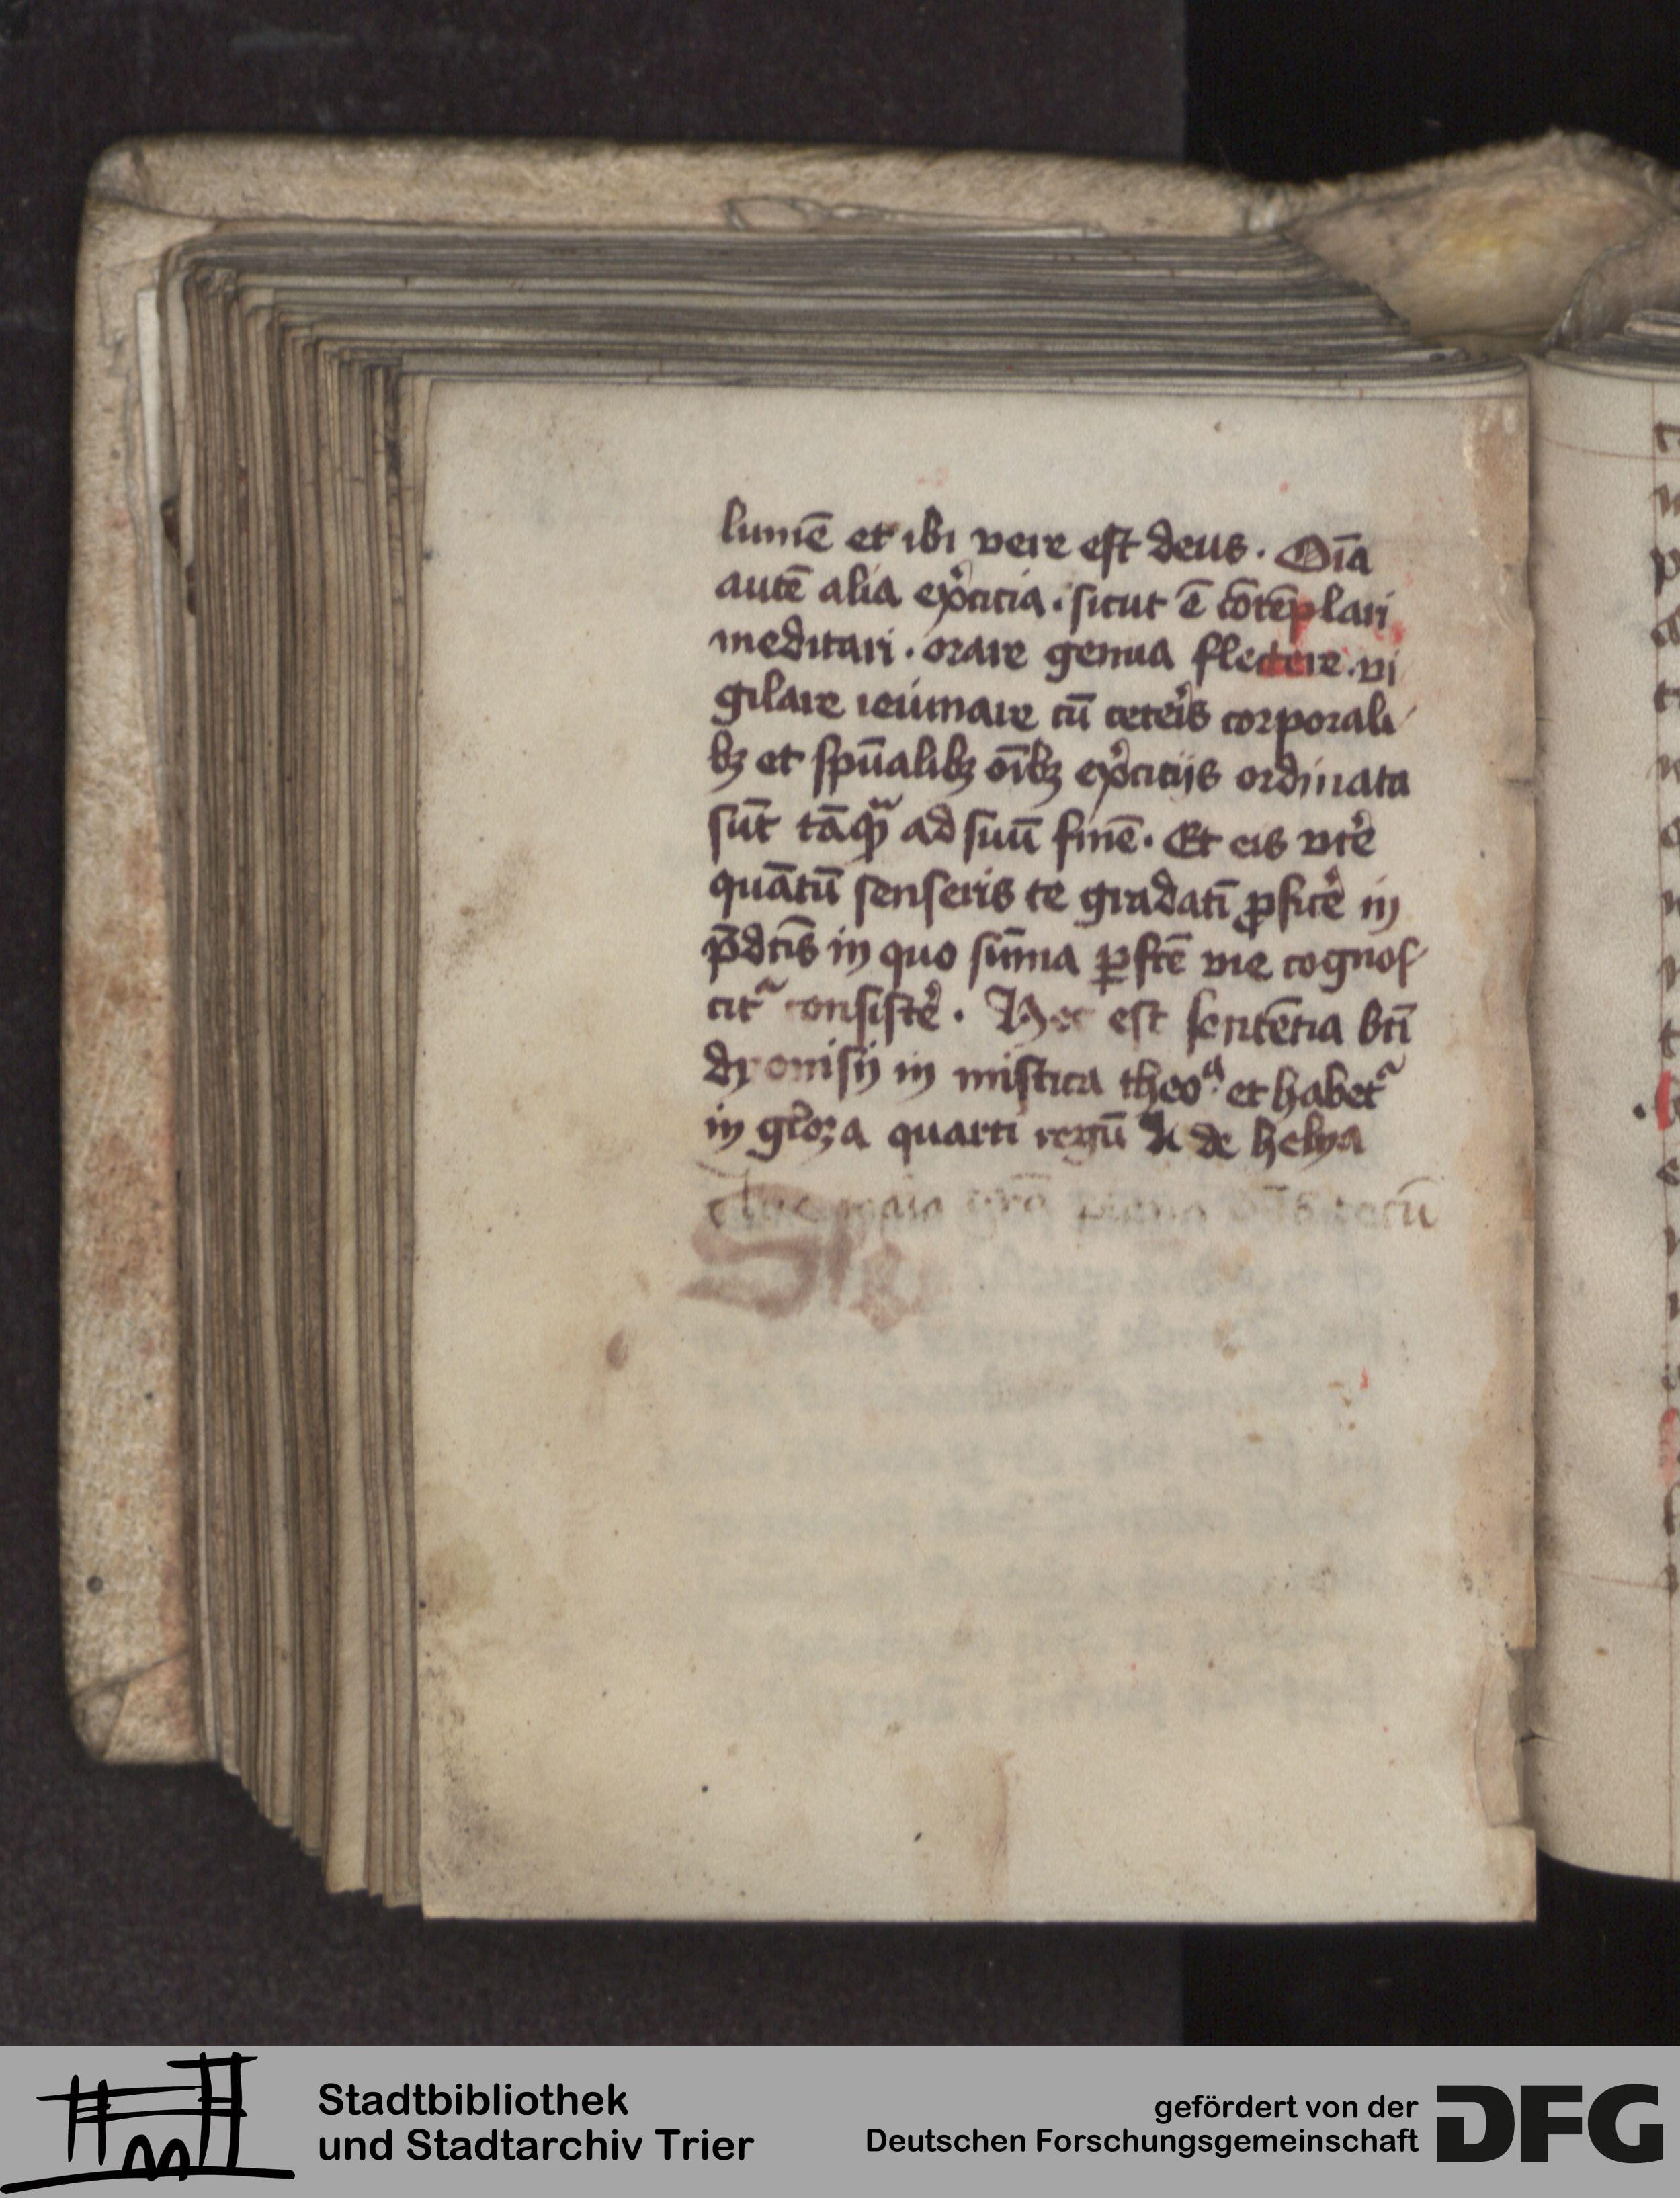 lumē et ibi vere est deus. Oīa
autē alia exͦcicia. sicut ē cōtēplari
meditari. orare genua flectere. vi
gilare ieiunare cū ceteris corporali
bꝫ et spūalibꝫ oībꝫ exͦcicijs ordinata
sūt tāqᷓ ad suū finē. Et eis vtēꝛe
quātū senseris te gradatī ꝓficēꝛe in
p̄dcīs in quo sūma ꝑfcē vie cognos
citᷣ consistēꝛe. Hec est sentētia btī
dyonisij in mistica theoᵃ. et habetᷣ
in gloza quarti regū de helya
Aue maia grā plena dn̄s tecū
Stadtbibliothek
und Stadtarchiv Trier
gefördert von der
Deutschen Forschungsgemeinschaft
DFG